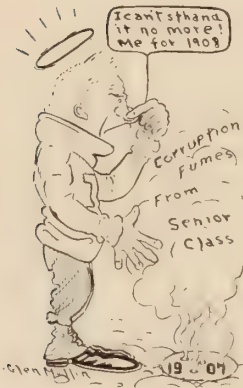 I can't sthand
it no more!
Me for 1908
Corruption
Fumes
From
Senior
Class
19 07
Glen Mullin